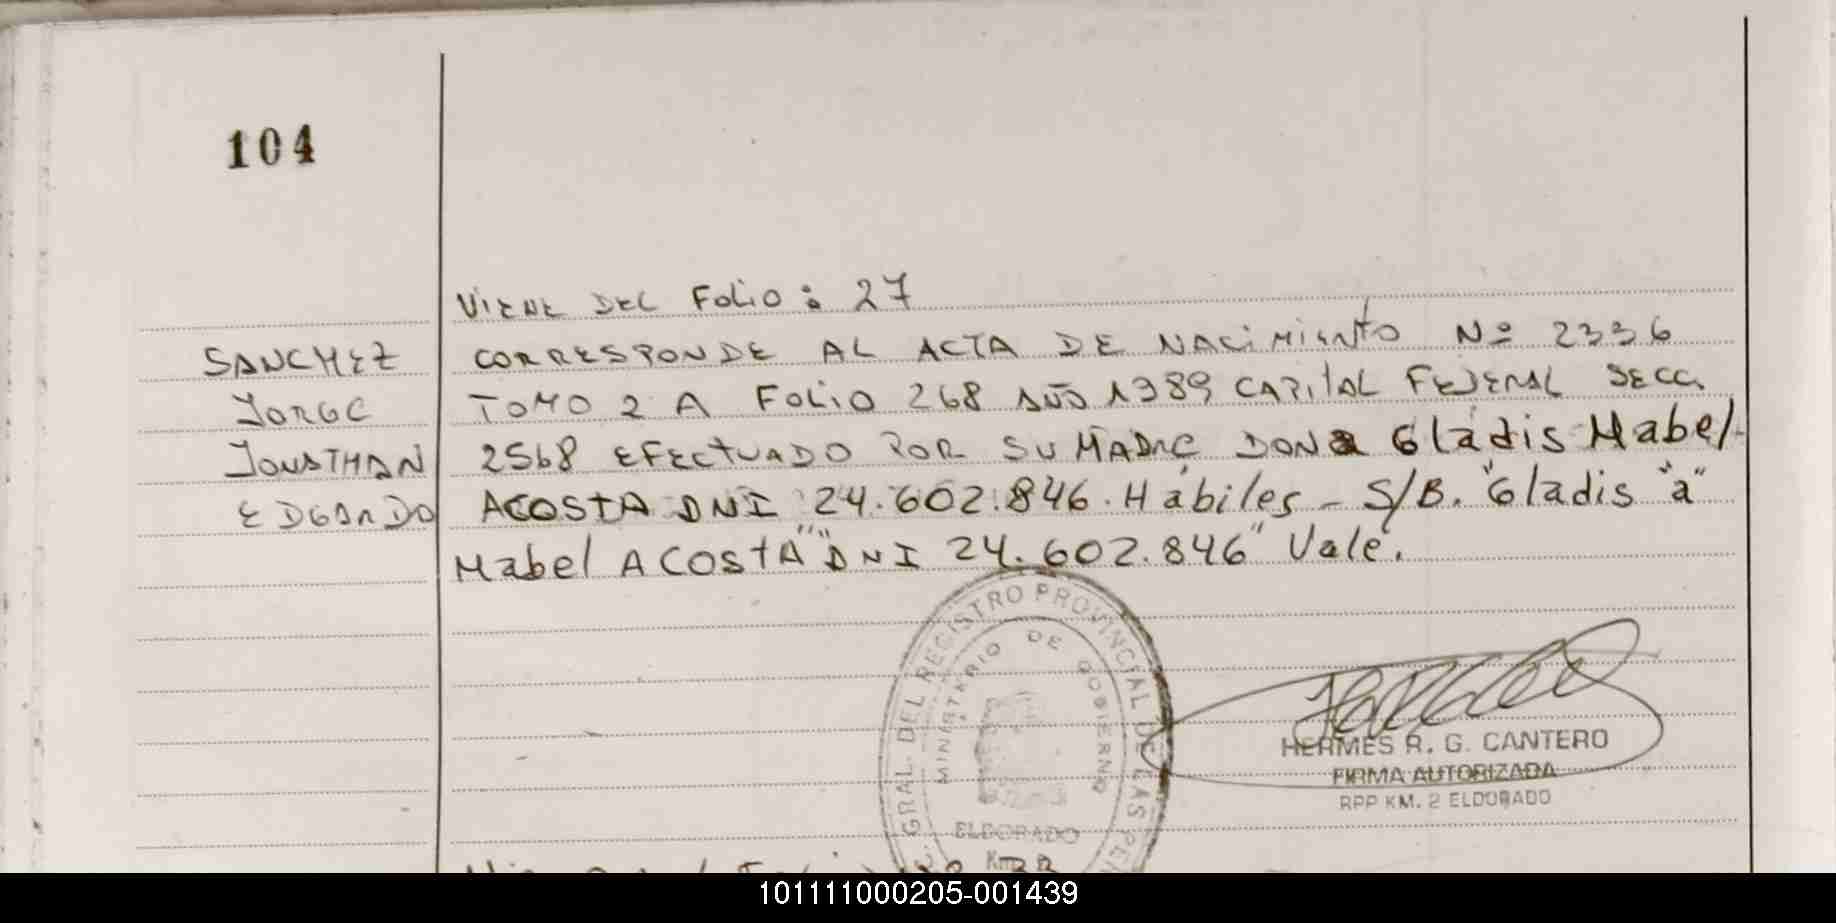 104
VIENE DEL FOLIO: 27
SANCHEZ
JORGE
JONATHAN
EDGARDO
CORRESPONDE AL ACTA DE NACIMIENTO Nº 2336
TOMO 2 A FOLIO 268 AÑO 1989 CAPITAL FEDERAL SECC.
2568 EFECTUADO POR SU MADRE DONA Gladis Mabel
ACOSTA DNI 24.602.846. Hábiles - S/B. "Gladis "a"
Mabel ACOSTA" "DNI 24.602.846" Vale.
GRAL. DEL REGISTRO PROVINCIAL DE LAS PER
MINISTERIO DE GOBIERNO
ELDORADO
HERMES R. G. CANTERO
FIRMA AUTORIZADA
RPP KM. 2 ELDORADO
101111000205-001439